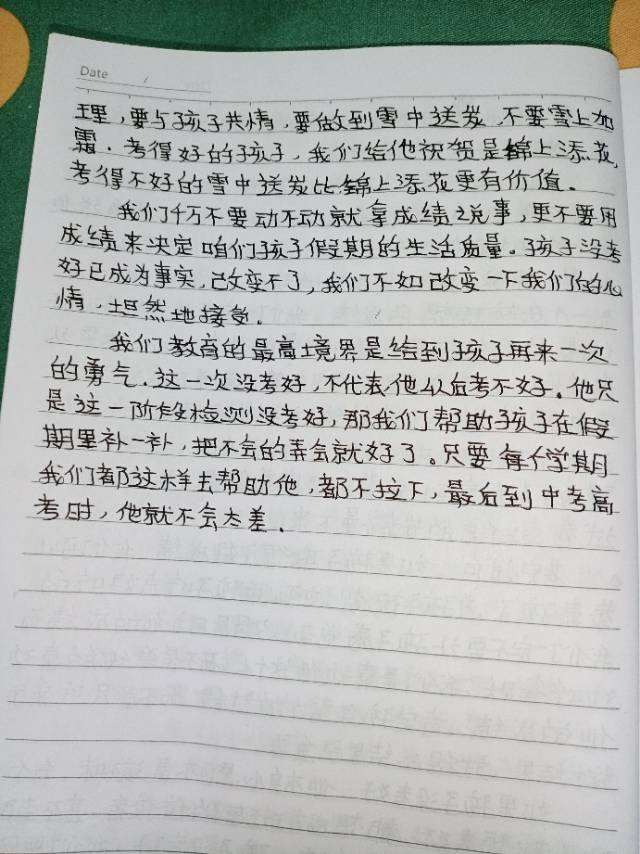 Date /
理，要与孩子共情，要做到雪中送炭，不要雪上加
霜．考得好的孩子，我们给他祝贺是锦上添花，
考得不好的雪中送炭比锦上添花更有价值．
我们千万不要动不动就拿成绩说事，更不要用
成绩来决定咱们孩子假期的生活质量．孩子没考
好已成为事实，改变不了，我们不如改变一下我们的心
情，坦然地接受．
我们教育的最高境界是给到孩子再来一次
的勇气．这一次没考好，不代表他以后考不好．他只
是这一阶段检测没考好，那我们帮助孩子在假
期里补一补，把不会的弄会就好了。只要每个学期
我们都这样去帮助他，都不拉下，最后到中考高
考时，他就不会太差．